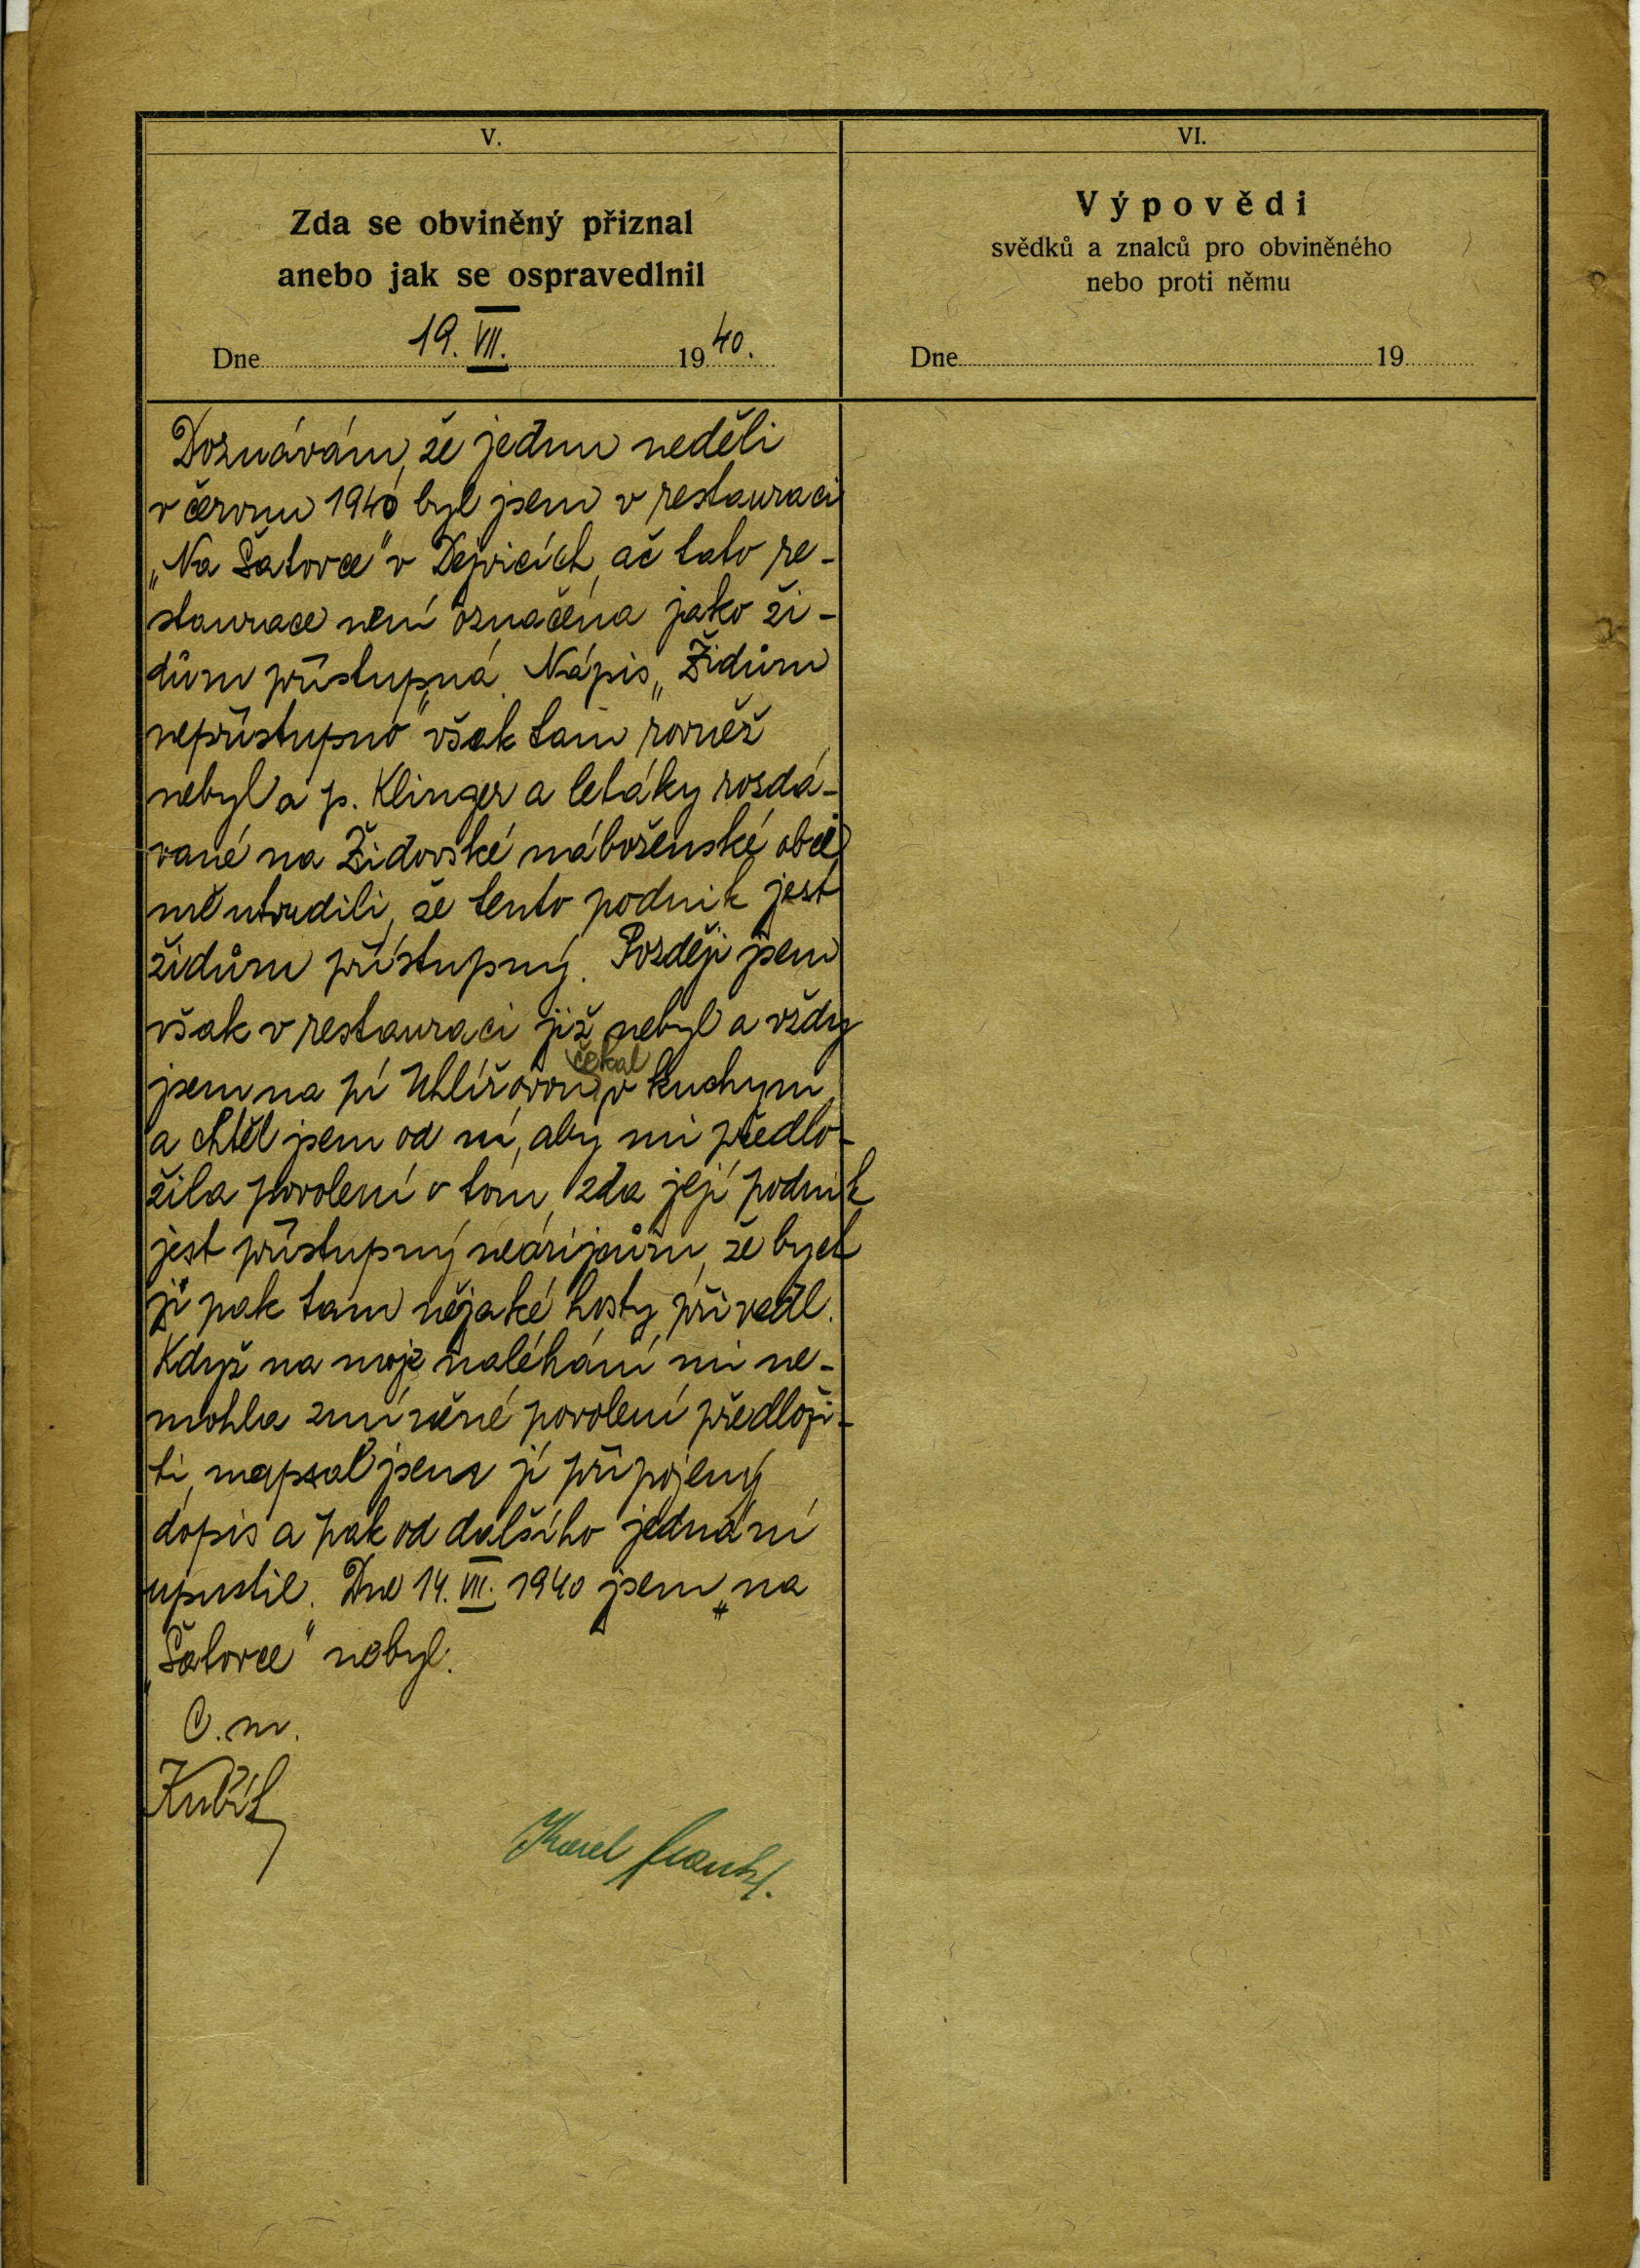 V.
Zda se obviněný přiznal
anebo jak se ospravedlnil
Dne 19. VII. 1940.
Doznávám, že jednu neděli
v červnu 1940 byl jsem v restauraci
„Na Šatovce" v Dejvicích, ač tato re-
staurace není označena jako ži-
dům přístupná. Nápis „Židům
nepřístupno" však tam rovněž
nebyl a p. Klinger a letáky rozdá-
vané na Židovské náboženské obci
mě utvrdili, že tento podnik jest
židům přístupný. Později jsem
však v restauraci již nebyl a vždy
jsem na pí Uhlířovou čekal v kuchyni
a chtěl jsem od ní, aby mi předlo-
žila povolení o tom, zda její podnik
jest přístupný neárijcům, že bych
jí pak tam nějaké hosty přivedl.
Když na moje naléhání mi ne-
mohla zmíněné povolení předloži-
ti, napsal jsem jí připojený
dopis a pak od dalšího jednání
upustil. Dne 14. VII. 1940 jsem „na
Šatovce" nebyl.
O. m.
Karel
VI.
Výpovědi
svědků a znalců pro obviněného
nebo proti němu
Dne 19